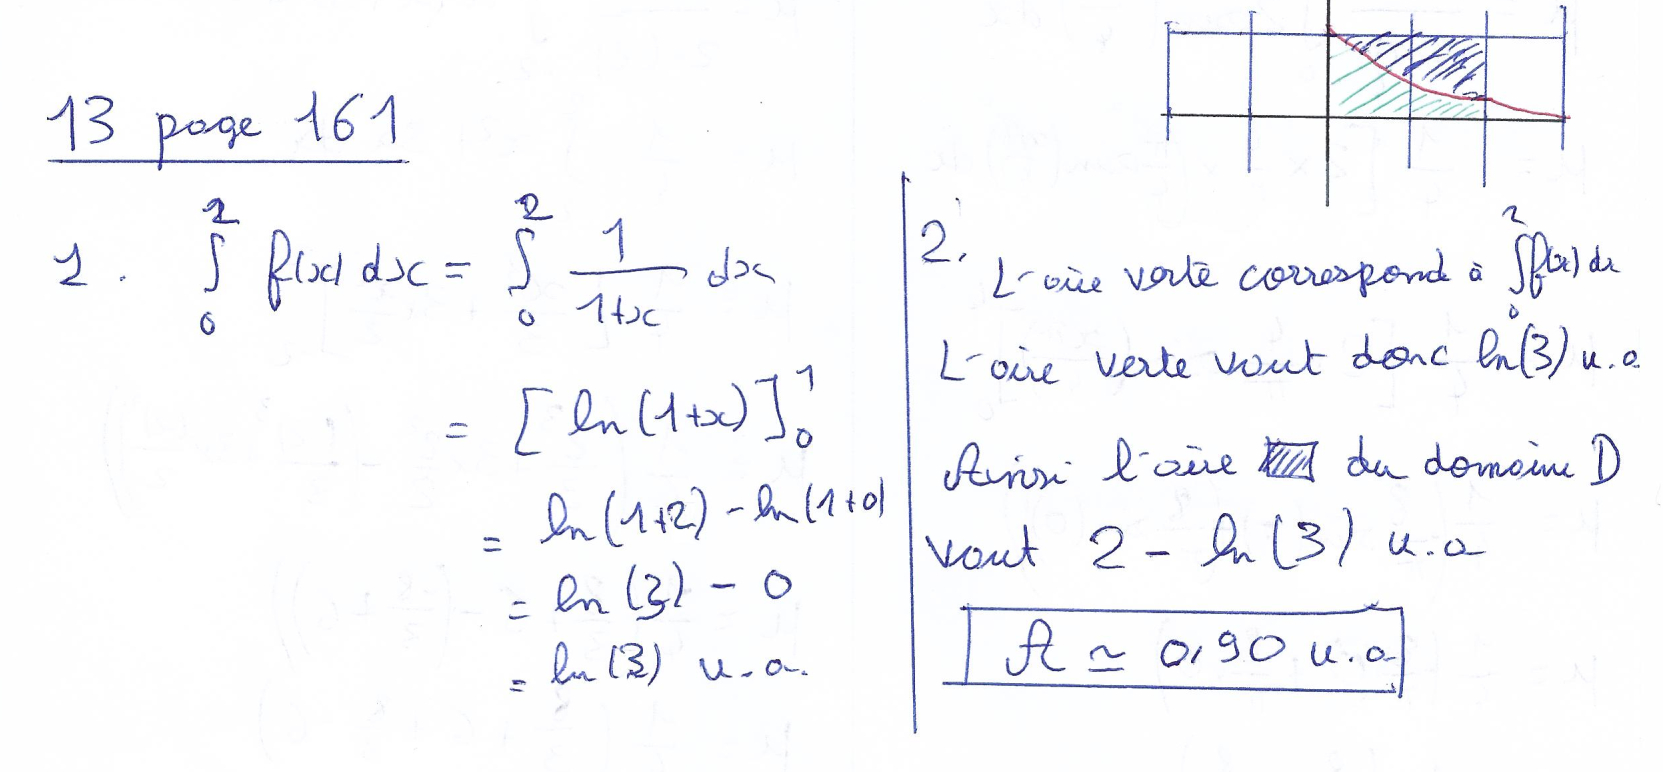 13 page 161
1. ∫₀² f(x) dx = ∫₀² 1/(1+x) dx
= [ln(1+x)]₀¹
= ln(1+2) - ln(1+0)
= ln(3) - 0
= ln(3) u.a.
2. L'aire verte correspond à ∫₀² f(x) dx
L'aire verte vaut donc ln(3) u.a
Ainsi l'aire du domaine D
vaut 2 - ln(3) u.a
A ≃ 0,90 u.a